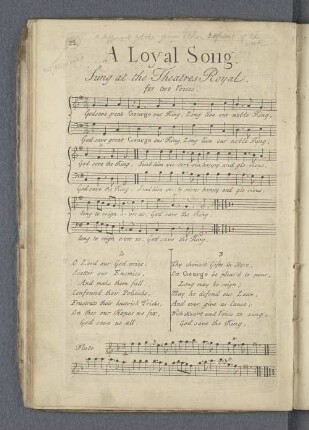 22
A Loyal Song
Sung at the Theatres Royal.
for two Voices
God save great George our King, Long live our noble King,
God save great George our King, Long live our noble King,
God save the King. Send him victorious happy and glorious,
God save the King. Send him victorious happy and glorious,
long to reign over us, God save the King
long to reign over us, God save the King.
2
O Lord our God arise,
Scatter our Enemies,
And make them fall
Confound their Politicks,
Frustrate their knavish Tricks,
On thee our Hopes we fix,
God save us all.
3
Thy choicest Gifts in Store,
On George be pleas'd to pour,
Long may he reign;
May he defend our Laws,
And ever give us Cause,
With Heart and Voice to sing,
God save the King.
Flute